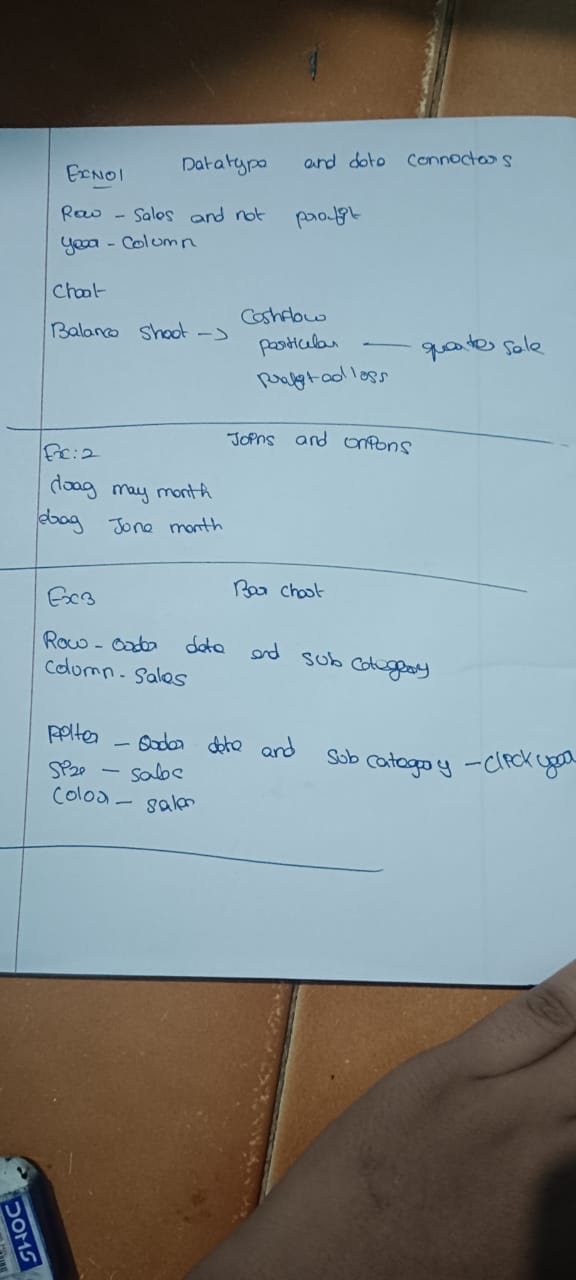 ExNO1 Datatype and data connectors
Row - Sales and not profit
year - Column
Chart
Balance Sheet -> Cashflow
particular — quarter sale
Ex:2 Joins and unions
drag may month
drag June month
Ex3 Bar chart
Row - order date and sub category
Column - Sales
Filter - order date and sub category - click year
Size - sales
Color - sales
DOMS